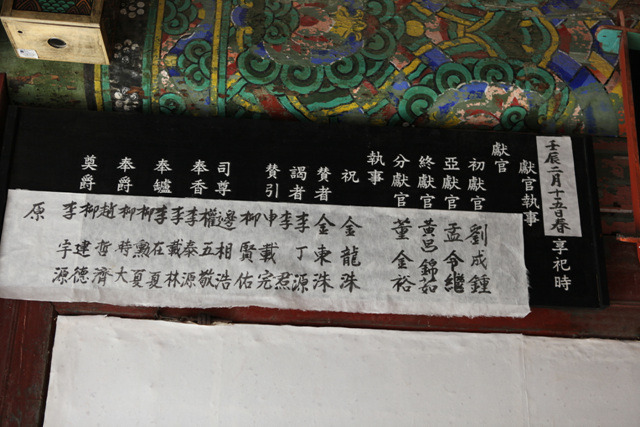 壬辰二月十五日春享祀時
獻官執事
獻官
初獻官 劉成鍾
亞獻官 孟令繼
終獻官 黃邑錦茹
分獻官 董金裕
執事
祝 金龍洙
贊者 金東洙
謁者 李丁源
贊引 李君
申載完
柳賢佑
司尊 邊相浩
奉香 權五敬
李泰源
奉罏 李載林
李在夏
奉爵 柳勳夏
柳時大
奠爵 趙哲濟
柳建德
李宇源
原